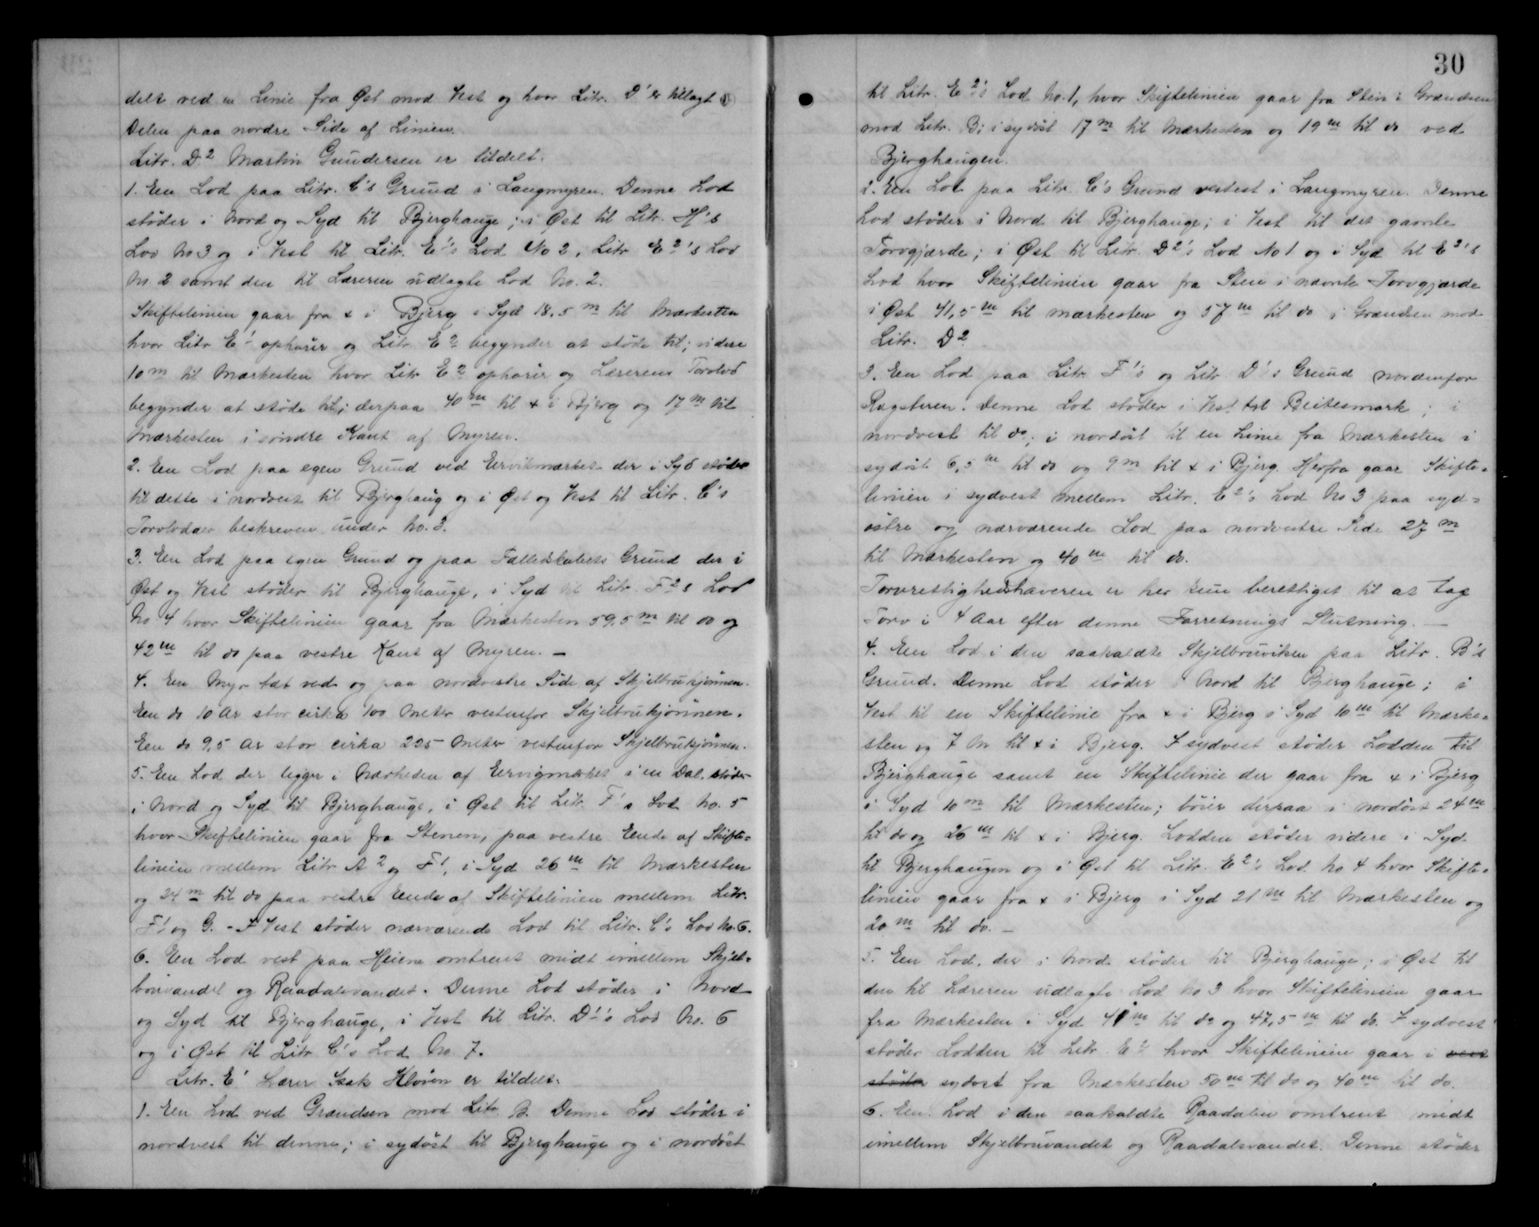 delt ved en Linie fra Øst mod Vest og hvor Litr. D' er tillagt
Delen paa nordre Side af Linien.
Litr. D² Martin Gundersen er tildelt.
1. Een Lod paa Litr. C's Grund i Langmyren. Denne Lod
støder i Nord og Syd til Bjerghauge; i Øst til Litr. H's
Lod No 3 og i Vest til Litr. E''s Lod No 2, Litr. E²'s Lod
No. 2 samt den til Læreren udlagte Lod No. 2.
Skiftelinien gaar fra x i Bjerg i Syd 18.5 m til Mærkesten
hvor Litr E' ophører og Litr. E² begynder at støde til; videre
10 m til Mærkesten hvor Litr E² ophører og Lærerens Torvlod
begynder at støde til; derpaa 40 m til x i Bjerg og 17 m til
Mærkesten i søndre Kant af Myren.
2. Een Lod paa egen Grund ved Eervikmærket der i Syd støder
til dette i nordvest til Bjerghaug og i Øst og Vest til Litr. C's
Torvlodder beskreven under No. 3.
3. Een Lod paa egen Grund og paa Fællesskabets Grund der i
Øst og Vest støder til Bjerghauge, i Syd til Litr. F²s Lod
No 4 hvor Skiftelinien gaar fra Mærkesten 59,5 m til do og
42 m til do paa vestre Kant af Myren. —
4. Een Myr tæt ved og paa nordvestre Side af Skjelbrukjønnen.
Een do 10 Ar stor cirka 100 Meter vestenfor Skjelbrukjønnen.
Een do 9,5 Ar stor cirka 225 Meter vestenfor Skjelbrukjønnen.
5. Een Lod der ligger i Nærheden af Eervigmærket i en Dal, støder
i Nord og Syd til Bjerghauge, i Øst til Litr. F's Lod No. 5
hvor Skiftelinien gaar fra Stenen, paa vestre Ende af Skifte=
linien mellem Litr A² og F', i Syd 26 m til Mærkesten
og 24 m til do paa vestre Ende af Skiftelinien mellem Litr.
F' og G. - I Vest støder nærværende Lod til Litr. C's Lod No. 6.
6. Een Lod vest paa Heiene omtrent midt imellem Skjel=
bruvandet og Raadalsvandet. Denne Lod støder i Nord
og Syd til Bjerghauge, i Vest til Litr. D''s Lod No. 6
og i Øst til Litr C's Lod No 7.
Litr. E' Lærer Isak Kløven er tildelt.
1. Een Lod ved Grændsen mod Litr B. Denne Lod støder i
nordvest til denne; i sydøst til Bjerghauge og i nordøst
30
til Litr. E²'s Lod No. 1, hvor Skiftelinien gaar fra Sten i Grændsen
mod Litr. B; i sydøst 17 m til Mærkesten og 19 m til do ved
Bjerghaugen.
2. Een Lod paa Litr. C's Grund vestest i Langmyren. Denne
Lod støder i Nord til Bjerghauge; i Vest til det gamle
Torvgjærde; i Øst til Litr. D²'s Lod No 1 og i Syd til E²'s
Lod hvor Skiftelinien gaar fra Sten i nævnte Torvgjærde
i Øst 41,5 m til mærkesten og 57 m til do i Grændsen mod
Litr. D².
3. Een Lod paa Litr F''s og Litr D''s Grund nordenfor
Denne Lod støder i Vest til Beitesmark; i
nordvest til do; i nordøst til en Linie fra Mærkesten i
sydøst 6,5 m til do og 9 m til x i Bjerg. Herfra gaar Skifte=
linien i sydvest mellem Litr. E²'s Lod No 3 paa syd=
østre og nærværende Lod paa nordvestre Side 27 m
til Mærkesten og 40 m til do.
Torvrettighedshaveren er her kun berettiget til at tage
Torv i 4 Aar efter denne Forretnings Slutning. —
4. Een Lod i den saakaldte Skjelbruviken paa Litr. B's
Grund. Denne Lod støder i Nord til Bjerghauge; i
Vest til en Skiftelinie fra x i Bjerg i Syd 10 m til Mærke=
sten og 7 m til x i Bjerg. I sydvest støder Lodden til
Bjerghauge samt en Skiftelinie der gaar fra x i Bjerg
i Syd 10 m til Mærkesten; bøier derpaa i nordøst 24 m
til do og 26 m til x i Bjerg. Lodden støder videre i Syd
til Bjerghaugen og i Øst til Litr. E²'s Lod No 4 hvor Skifte=
linien gaar fra x i Bjerg i Syd 21 m til Mærkesten og
20 m til do. —
5. Een Lod, der i Nord støder til Bjerghauge; i Øst til
den til Læreren udlagte Lod No 3 hvor Skiftelinien gaar
fra Mærkesten i Syd 41 m til do og 47,5 m til do. I sydvest
støder Lodden til Litr. E² hvor Skiftelinien gaar i vest
støder sydost fra Mærkesten 50 m til do og 40 m til do.
6. Een Lod i den saakaldte Raadalen omtrent midt
imellem Skjelbruvandet og Raadalsvandet. Denne støder